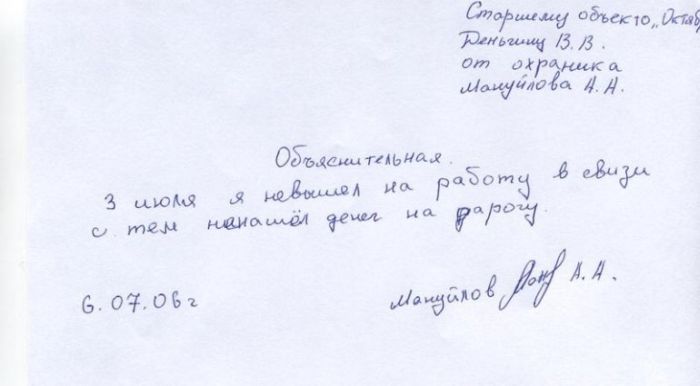 Старшему объекто „Октяб
Деньгину В.В.
от охраника
Мануйлова А.А.
Объяснительная.
3 июля я невышел на работу в свизи
с тем ненашёл денег на дарогу.
6.07.06г Мануйлов А.А.